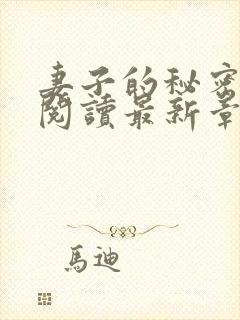 妻子的秘密
閱讀最新章
馬迪